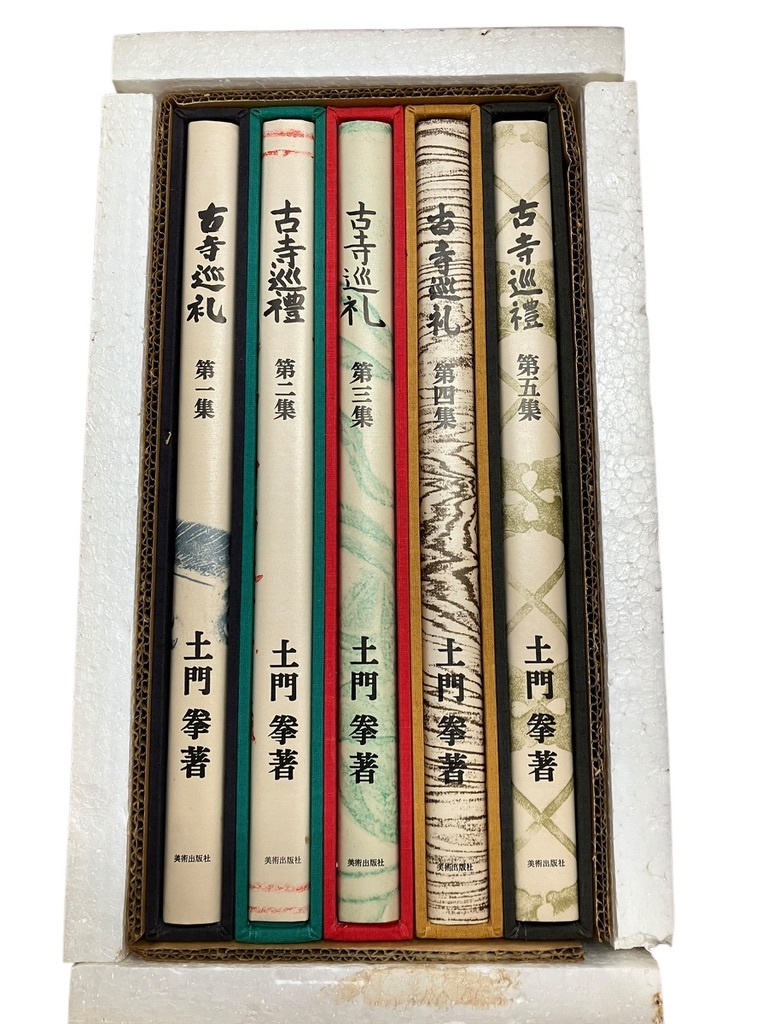 古寺巡礼
第一集
土門拳著
美術出版社
古寺巡禮
第二集
土門拳著
美術出版社
古寺巡礼
第三集
土門拳著
美術出版社
古寺巡礼
第四集
土門拳著
美術出版社
古寺巡禮
第五集
土門拳著
美術出版社